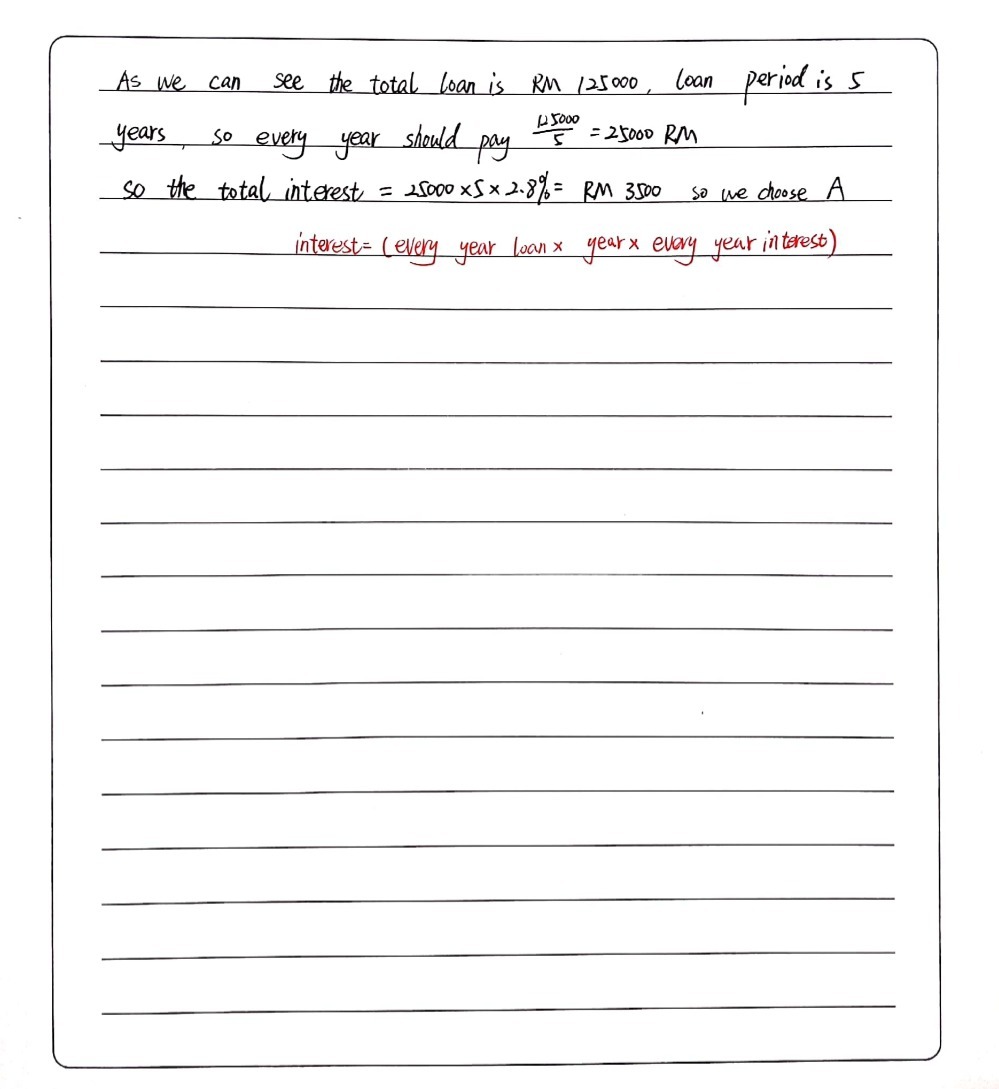 As we can see the total loan is RM 125000, loan period is 5
years, so every year should pay 125000/5 = 25000 RM
so the total interest = 25000 × 5 × 2.8% = RM 3500 so we choose A
interest = (every year loan × year × every year interest)